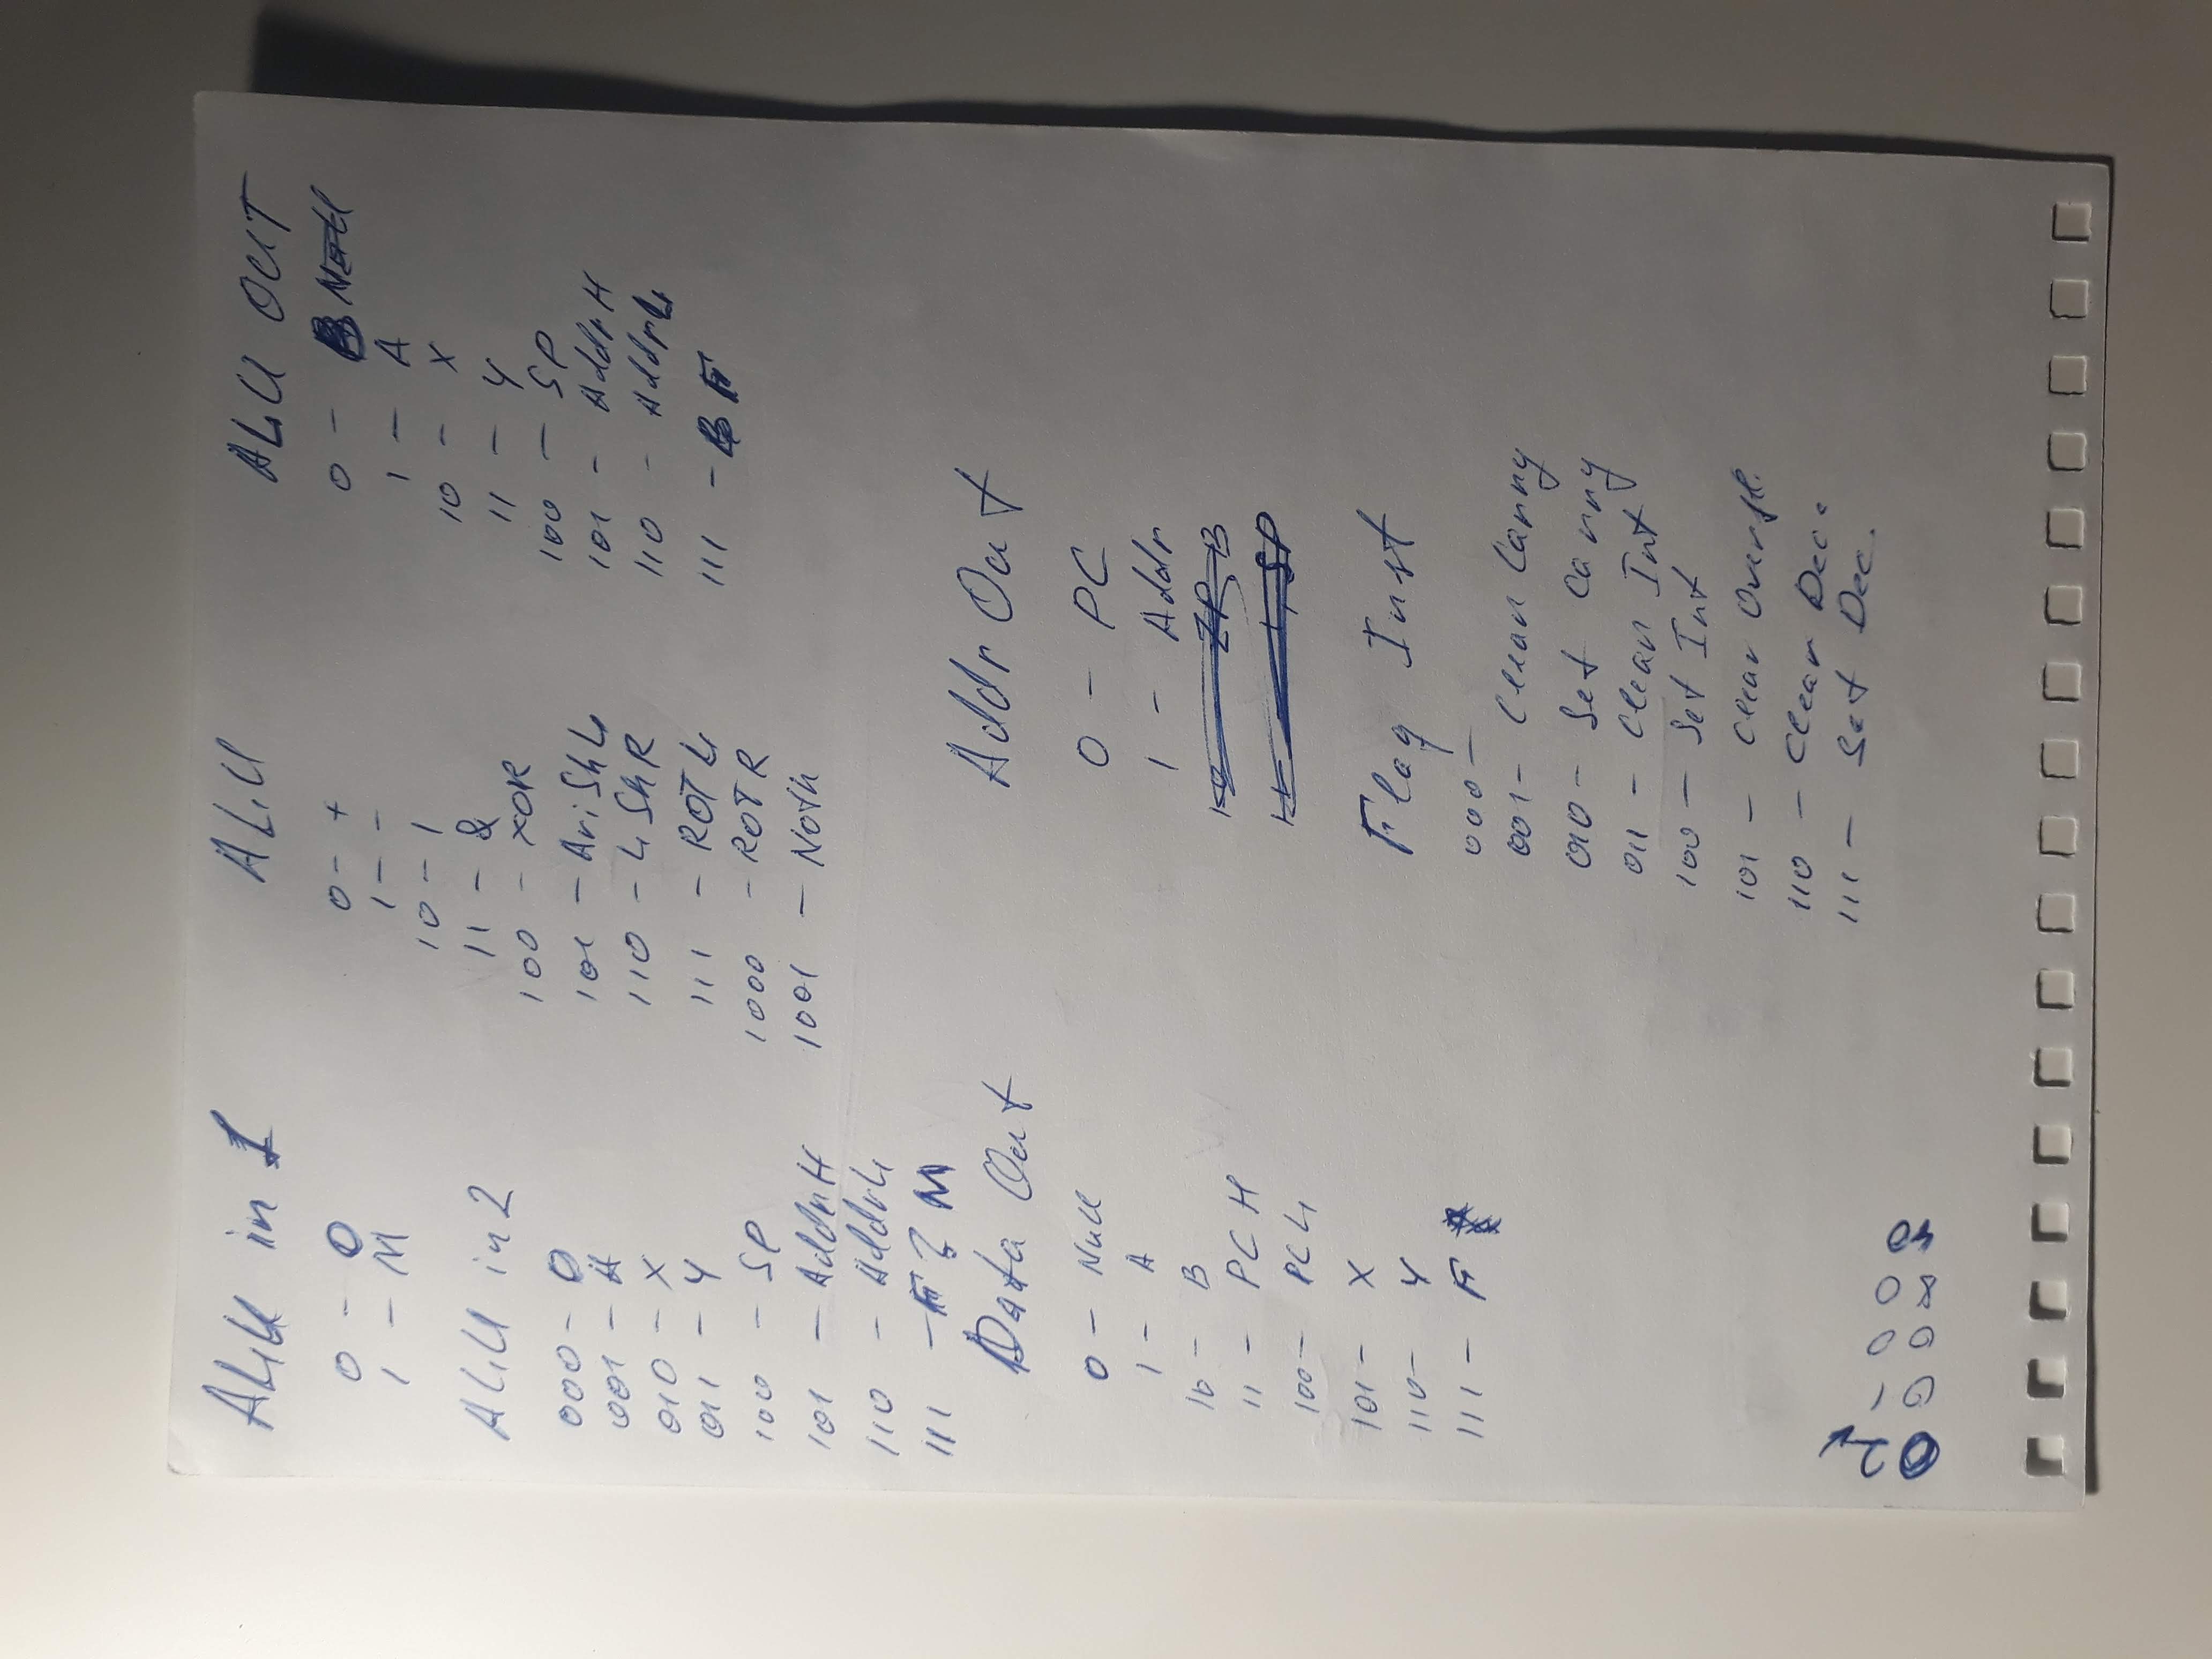 ALU in 1
0 - 0
1 - M
ALU in 2
000 - 0
001 - A
010 - X
011 - Y
100 - SP
101 - AddrH
110 - AddrL
111 - F ? M
ALU
0 - +
1 - -
10 - |
11 - &
100 - XOR
101 - AriShL
110 - LShR
111 - ROTL
1000 - ROTR
1001 - Noth
ALU OUT
0 - Null
1 - A
10 - X
11 - Y
100 - SP
101 - AddrH
110 - AddrL
111 - F
Data Out
0 - Null
1 - A
10 - B
11 - PCH
100 - PCL
101 - X
110 - Y
111 - F
Addr Out
0 - PC
1 - Addr
10 ZP, B
11 - 1, SP
Flag Inst
000 -
001 - Clear Carry
010 - Set Carry
011 - Clear Int
100 - Set Int
101 - Clear Overfl.
110 - Clear Dec.
111 - Set Dec.